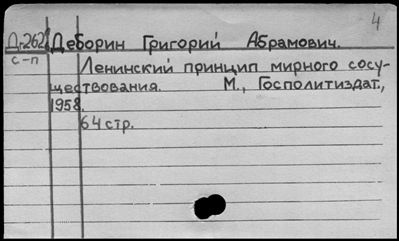 4
Д-262 Деборин Григорий Абрамович.
с-п
Ленинский принцип мирного сосу-
ществования. М., Госполитиздат.,
1958.
64 стр.